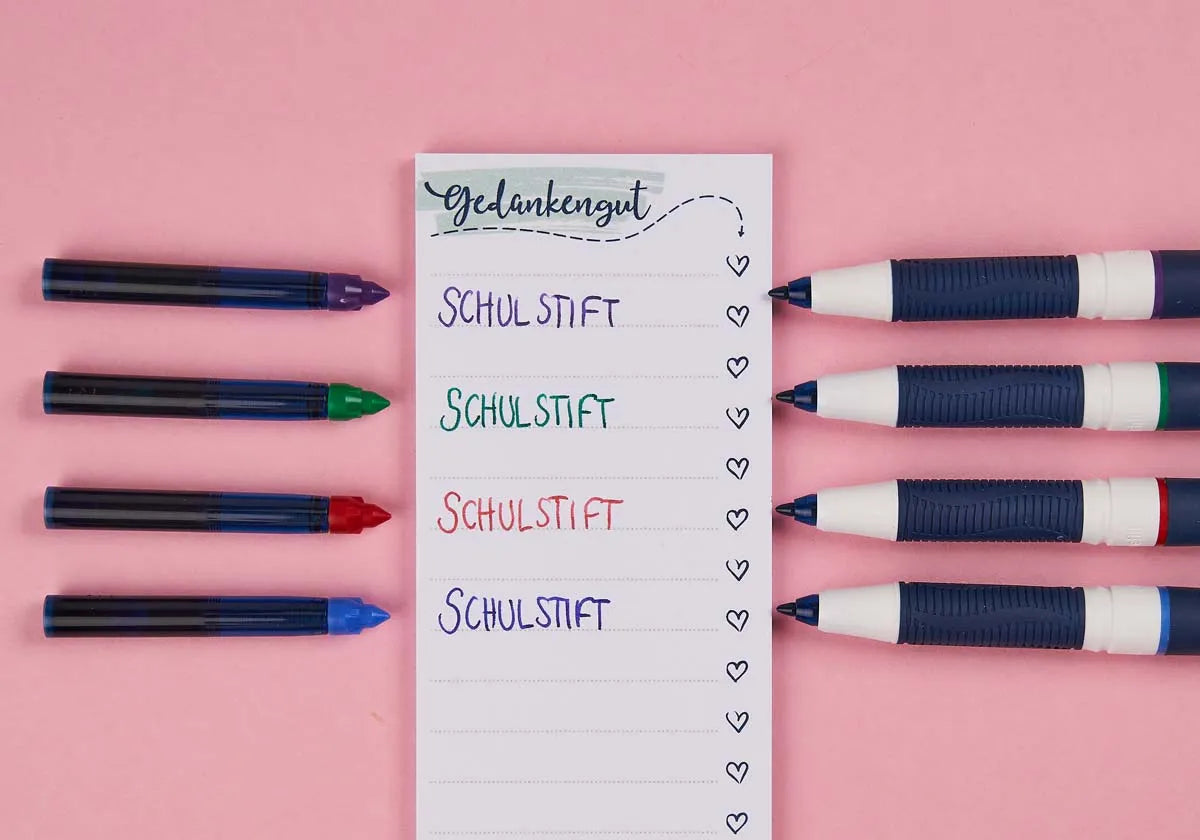 Gedankengut
SCHULSTIFT
SCHULSTIFT
SCHULSTIFT
SCHULSTIFT